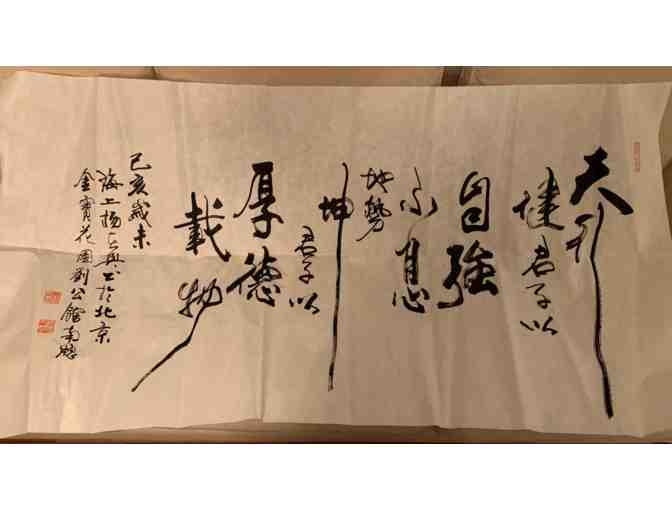 天行
健君子以
自強
不息
地勢
坤
君子以
厚德
載物
己亥歲末
海上楊以興書於北京
金寶花園劉公館南窗